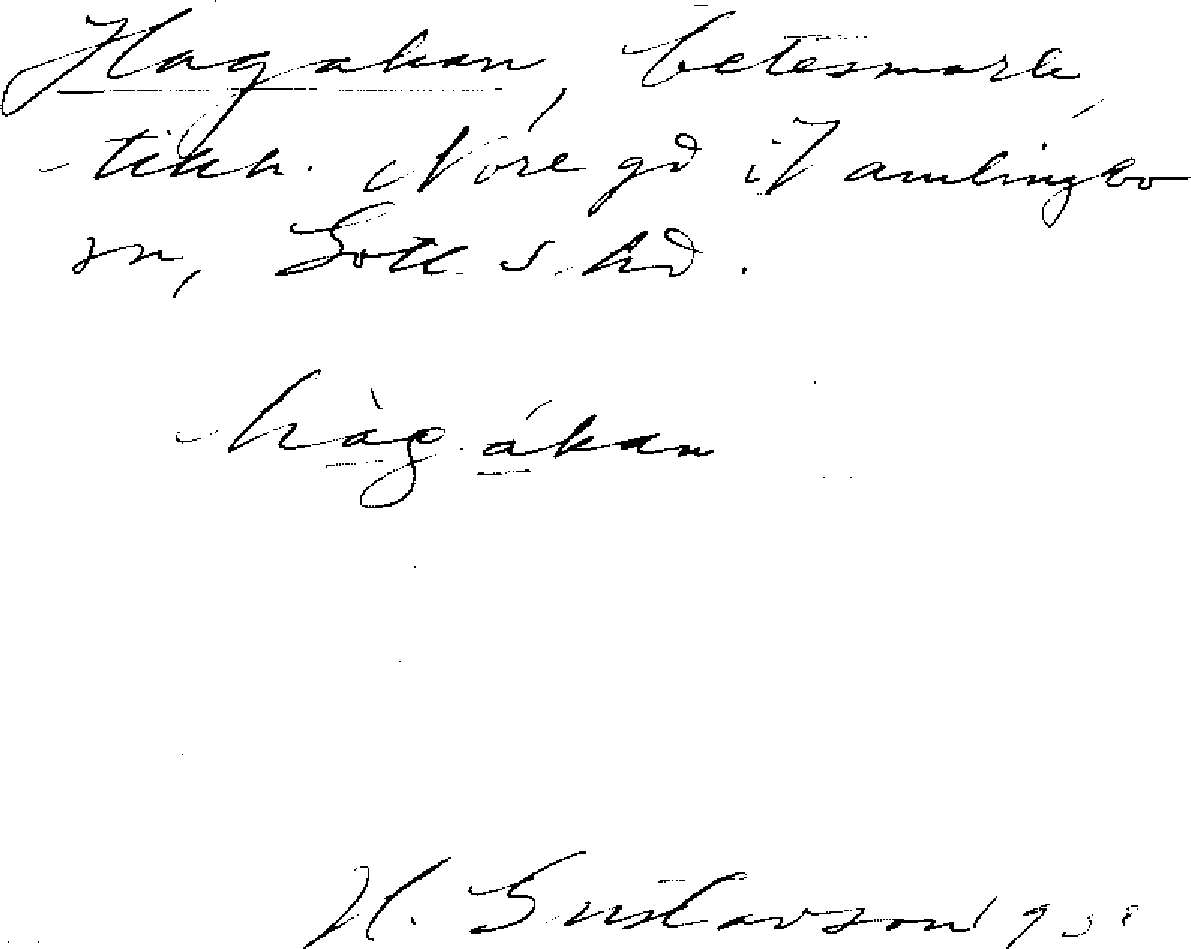 Hagakan, betesmark,
tillh. Nore gd i Hamlingbo
sn, Gotl. s. hd.
hàg ákan
H. Gustavson